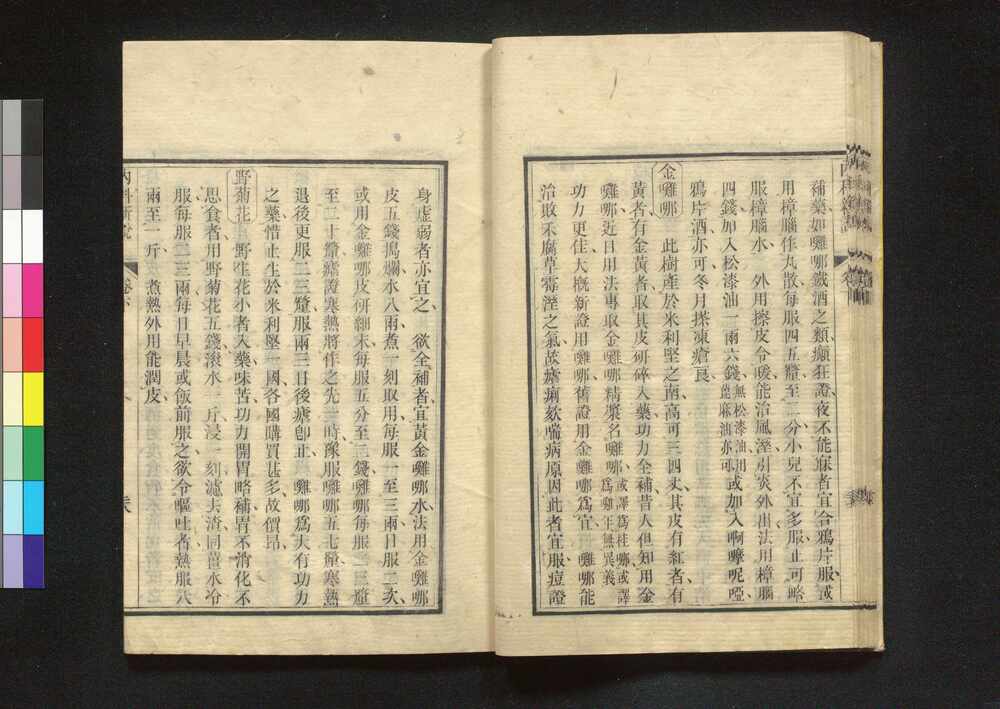 補藥如雞哪鐵酒之類癲狂證夜不能寐者宜合鴉片服或
用樟腦作丸散每服四五釐至二分小兒不宜多服止可略
服樟腦水 外用擦皮令暖能治風溼引炎外出法用樟腦
四錢加入松漆油一兩六錢無松漆油用萆麻油亦可或加入啊嚤呢啞
鴉片酒亦可冬月搽凍瘡良
金雞哪 此樹產於米利堅之南高可三四丈其皮有紅者有
黃者有金黃者取其皮研碎入藥功力全補昔人但知用金
雞哪近日用法專取金雞哪精槳名雞哪或譯為桂哪或譯為雞正無異義
功力更佳大概新證用雞哪舊證用金雞哪為宜 雞哪能
治敗不腐草霉溼之氣故瘧痢欬喘病原因此者宜服痘證
身虛弱者亦宜之 欲全補者宜黃金雞哪水法用金雞哪
皮五錢搗爛水八兩煮一刻取用每服一至三兩日服二次
或用金雞哪皮研細末每服五分至二錢雞哪每服二三釐
至二十釐瘧證寒熱將作之先一時豫服雞哪五七釐寒熱
退後更服二三釐服兩三日後瘧即止 雞哪為大有功力
之藥惜止生於米利堅一國各國購買甚多故價昂
野菊花 野生花小者入藥味苦功力開胃略補胃不消化不
思食者用野菊花五錢滾水一斤浸一刻濾去渣同薑水冷
服每服二三兩每日早晨或飯前服之欲令嘔吐者熱服六
兩至一斤 煮熟外用能潤皮
內科新說 卷下